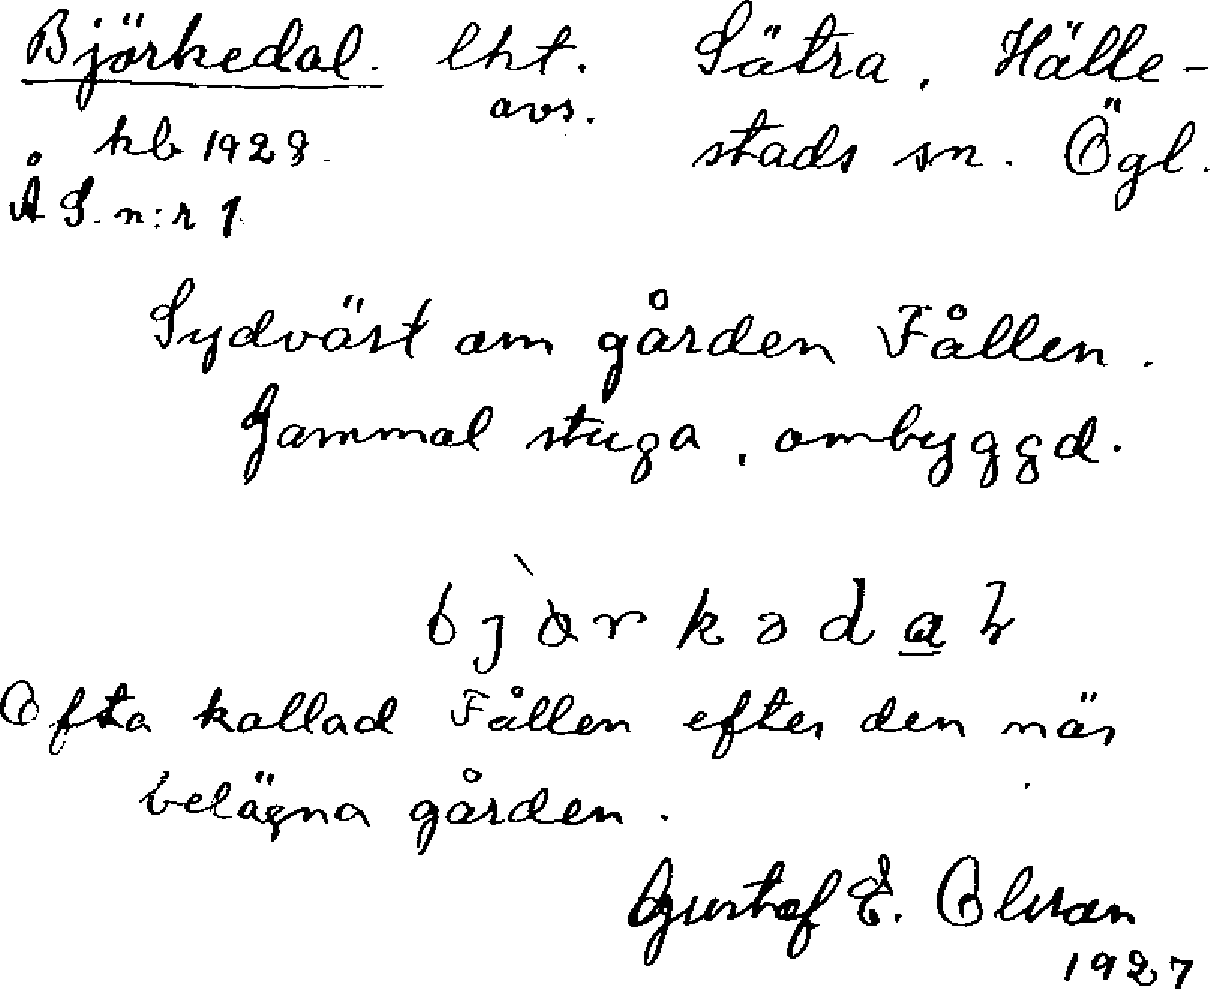 Björkedal. lht. Sätra, Hälle-
avs.
kb 1928. stads sn. Ögl.
ÅS. n:r 1.
Sydväst om gården Fållen.
Gammal stuga, ombyggd.
Ofta kallad Fållen efter den när
belägna gården.
Gustaf E. Olsson
1927